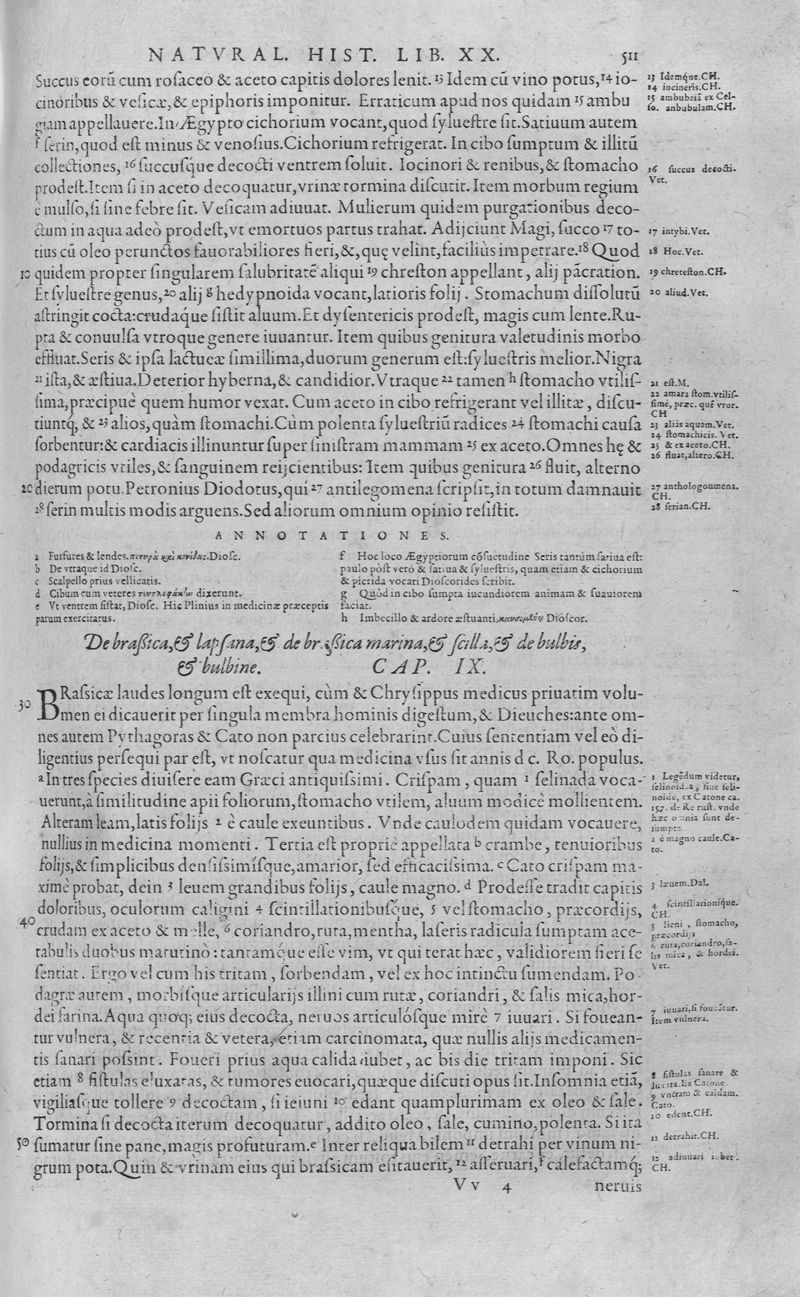 NATVRAL. HIST. LIB. XX. 511
Succus eorū cum rosaceo & aceto capitis dolores lenit. 13 Idem cū vino potus, 14 io-
cinoribus & vesicæ, & epiphoris imponitur. Erraticum apud nos quidam 15 ambu
giam appellauere. In Ægypto cichorium vocant, quod syluestre sit. Satiuum autem
f serin, quod est minus & venosius. Cichorium refrigerat. In cibo sumptum & illitū
collectiones, 16 succusque decocti ventrem soluit. Iocinori & renibus, & stomacho
prodest. Item si in aceto decoquatur, vrinæ tormina discutit. Item morbum regium
è mulso, si sine febre sit. Vesicam adiuuat. Mulierum quidem purgationibus deco-
ctum in aqua adeò prodest, vt emortuos partus trahat. Adijciunt Magi, succo 17 to-
tius cū oleo perunctos fauorabiliores fieri, &, quę velint, faciliùs impetrare. 18 Quod
10 quidem propter singularem salubritatē aliqui 19 chreston appellant, alij pācration.
Et syluestre genus, 20 alij g hedypnoida vocant, latioris folij. Stomachum dissolutū
astringit cocta: crudaque sistit aluum. Et dysentericis prodest, magis cum lente. Ru-
pta & conuulsa vtroque genere iuuantur. Item quibus genitura valetudinis morbo
effluat. Seris & ipsa lactucæ simillima, duorum generum est: syluestris melior. Nigra
21 ista, & æstiua. Deterior hyberna, & candidior. Vtraque 22 tamen h stomacho vtilis-
sima, præcipuè quem humor vexat. Cum aceto in cibo refrigerant vel illitæ, discu-
tiuntq, & 23 alios, quàm stomachi. Cùm polenta syluestriū radices 24 stomachi causa
sorbentur: & cardiacis illinuntur super sinistram mammam 25 ex aceto. Omnes hę &
podagricis vtiles, & sanguinem reijcientibus: Item quibus genitura 26 fluit, alterno
20 dierum potu. Petronius Diodotus, qui 27 antilegomena scripsit, in totum damnauit
28 serin multis modis arguens. Sed aliorum omnium opinio resistit.
13 Idemque. CH.
14 iocineris. CH.
15 ambubeiā ex Cel-
so. anbubulam. CH.
16 succus decocti.
Vet.
17 intybi. Vet.
18 Hoc. Vet.
19 chreteston. CH.
20 aliud. Vet.
21 est. M.
22 amara stom. vtilis-
simę, præc. quę vror.
CH
23 aliàs aquam. Vet.
24 stomachicis. Vet.
25 & ex aceto. CH.
26 fluat, altero. CH.
27 anthologoumena.
CH.
28 serian. CH.
ANNOTATIONES.
a Furfures & lendes. πιτυρὰ καὶ κονίδας. Diosc.
b De vtraque id Diosc.
c Scalpello prius vellicatis.
d Cibum cum veteres dixerunt.
e Vt ventrem sistat, Diosc. Hic Plinius in medicinæ præceptis
parum exercitatus.
f Hoc loco Ægyptiorum cōsuetudine Seris tantùm satiua est:
paulo pòst verò & satiua & syluestris, quam etiam & cichorium
& picrida vocari Dioscorides scribit.
g Quòd in cibo sumpta iucundiorem animam & suauiorem
faciat.
h Imbecillo & ardore æstuanti, Dioscor.
De brassica, & lapsana, & de brassica marina, & scilla, & de bulbis,
& bulbine. CAP. IX.
30 BRassicæ laudes longum est exequi, cùm & Chrysippus medicus priuatim volu-
men ei dicauerit per singula membra hominis digestum, & Dieuches: ante om-
nes autem Pythagoras & Cato non parcius celebrarint. Cuius sententiam vel eò di-
ligentius persequi par est, vt noscatur qua medicina vsus sit annis d c. Ro. populus.
a In tres species diuisere eam Græci antiquissimi. Crispam, quam 1 selinada voca-
uerunt, à similitudine apii foliorum, stomacho vtilem, aluum modicè mollientem.
Alteram leam, latis folijs 2 è caule exeuntibus. Vnde caulodem quidam vocauere,
nullius in medicina momenti. Tertia est propriè appellata b crambe, tenuioribus
folijs, & simplicibus densissimisque, amarior, sed efficacissima. c Cato crispam ma-
ximè probat, dein 3 leuem grandibus folijs, caule magno. d Prodesse tradit capitis
doloribus, oculorum caligini 4 scintillationibusque, 5 vel stomacho, præcordijs,
40 crudam ex aceto & melle, 6 coriandro, ruta, mentha, laseris radicula sumptam ace-
tabulis duobus matutinò: tantamque esse vim, vt qui terat hæc, validiorem fieri se
sentiat. Ergo vel cum his tritam, sorbendam, vel ex hoc intinctu sumendam. Po-
dagræ autem, morbisque articularijs illini cum rutæ, coriandri, & salis mica, hor-
dei farina. Aqua quoq; eius decocta, neruos articulosque mirè 7 iuuari. Si fouean-
tur vulnera, & recentia & vetera, etiam carcinomata, quæ nullis alijs medicamen-
tis sanari possint. Foueri prius aqua calida iubet, ac bis die tritam imponi. Sic
etiam 8 fistulas & luxatas, & tumores euocari, quæque discuti opus sit. Insomnia etiā,
vigiliasque tollere 9 decoctam, si ieiuni 10 edant quamplurimam ex oleo & sale.
Tormina si decocta iterum decoquatur, addito oleo, sale, cumino, polenta. Si ita
50 sumatur sine pane, magis profuturam. e Inter reliqua bilem 11 detrahi per vinum ni-
grum pota. Quin & vrinam eius qui brassicam esitauerit, 12 asseruari, f calefactamq;
Vv 4 neruis
1 Legēdum videtur,
selinoidea, siue seli-
noide, ex Catone ca.
157. de Re rust. vnde
hæc omnia sunt de-
sumpta.
2 è magno caule. Ca-
to.
3 læuem. Dal.
4 scintillationique.
CH.
5 lieni, stomacho,
præcordijs
6 ruta, coriandro, sa-
lis mica, & hordei.
Vet.
7 iuuari, si fouētur.
Item vulnera.
8 fistulas sanare &
luxata. Ex Catone
9 vnctam & calidam.
Cato.
10 edent. CH.
11 detrahit. CH.
12 adiuuari iubet.
CH.